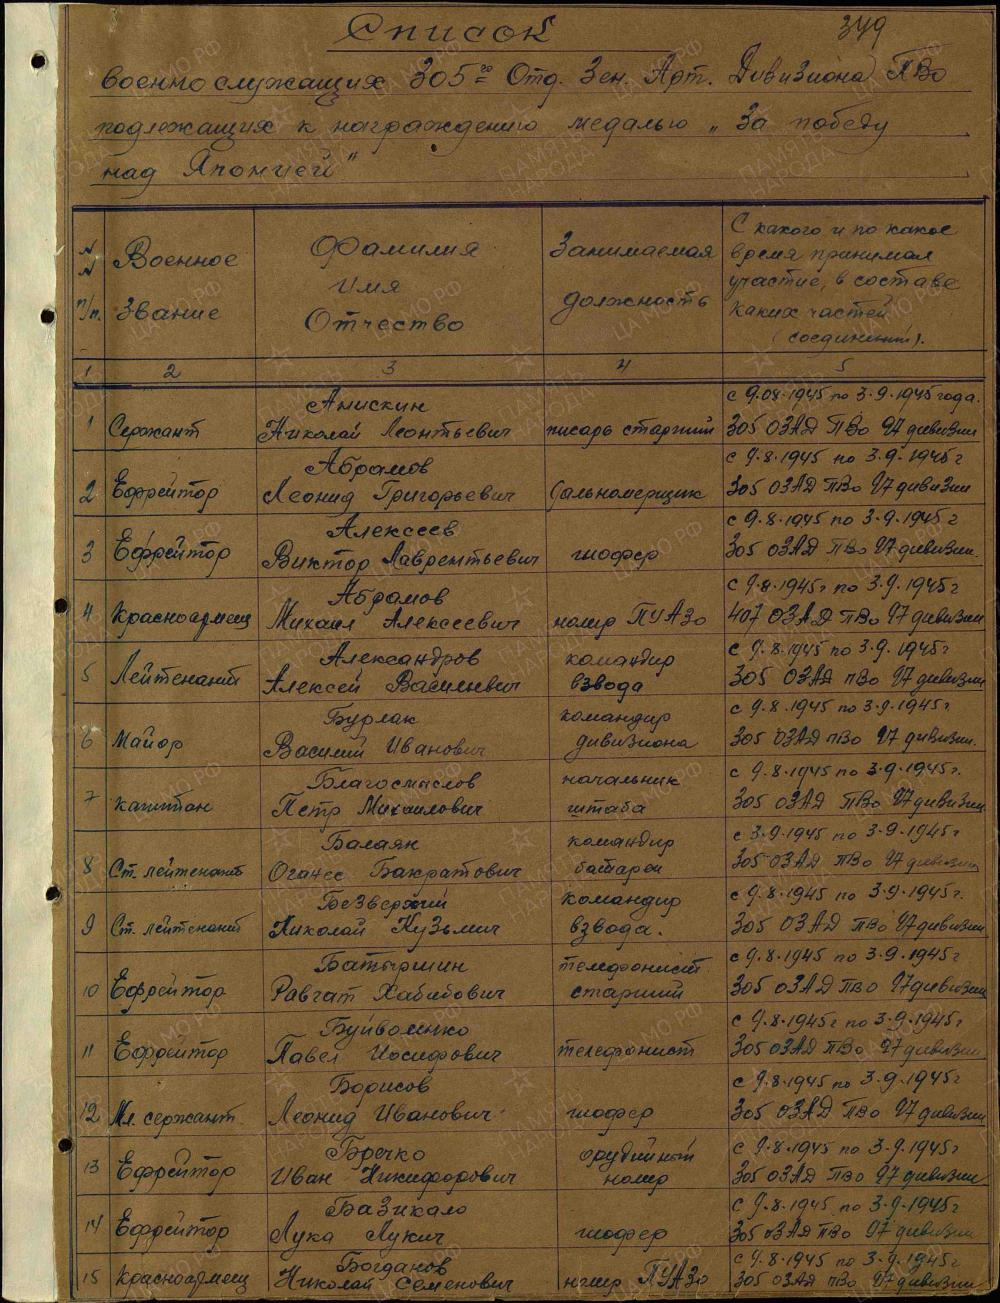 Список
349
военнослужащих 305го Отд. Зен. Арт. Дивизиона ПВо
подлежащих к награждению медалью „За победу
над Японией"
N N п/п.
Военное Звание
Фамилия Имя Отчество
Занимаемая должность
С какого и по какое
время принимал
участие, в составе
каких частей
(соединений).
1 2 3 4 5
Анискин с 9.08.1945 по 3.9.1945 года.
1 Сержант Николай Леонтьевич писарь старший 305 ОЗАД ПВо 97 дивизии
Абрамов с 9.8.1945 по 3.9.1945 г
2 Ефрейтор Леонид Григорьевич дальномерщик 305 ОЗАД ПВо 97 дивизии
Алексеев с 9.8.1945 по 3.9.1945 г
3 Ефрейтор Виктор Лаврентьевич шофер 305 ОЗАД ПВо 97 дивизии.
Абрамов с 9.8.1945г по 3.9.1945 г
4 Красноармеец Михаил Алексеевич номер ПУАЗо 407 ОЗАД ПВо 97 дивизии
Александров командир с 9.8.1945г по 3.9.1945 г
5 Лейтенант Алексей Василевич взвода 305 ОЗАД ПВо 97 дивизии
Бурлак командир с 9.8.1945 по 3.9.1945 г.
6 Майор Василий Иванович дивизиона 305 ОЗАД ПВо 97 дивизии.
Благосмыслов начальник с 9.8.1945 по 3.9.1945г.
7 капитан Петр Михаилович штаба 305 ОЗАД ПВо 97 дивизии
Балаян командир с 3.9.1945 по 3.9.1945 г
8 Ст. лейтенант Оганес Бакратович батареи 305 ОЗАД ПВо 97 дивизии
Безверхий командир с 9.8.1945 по 3.9.1945г.
9 Ст. лейтенант Николай Кузьмич взвода. 305 ОЗАД ПВо 97 дивизии
Батыршин телефонист с 9.8.1945 по 3.9.1945 г
10 Ефрейтор Равгат Хабибович старший 305 ОЗАД ПВо 97 дивизии
Буйволенко с 9.8.1945г по 3.9.1945 г
11 Ефрейтор Павел Иосифович телефонист 305 ОЗАД ПВо 97 дивизии
Борисов с 9.8.1945 по 3.9.1945 г
12 Мл. сержант Леонид Иванович шофер 305 ОЗАД ПВо 97 дивизии
Бречко орудийный с 9.8.1945 по 3.9.1945г
13 Ефрейтор Иван Никифорович номер 305 ОЗАД ПВо 97 дивизии
Базикало с 9.8.1945 по 3.9.1945 г
14 Ефрейтор Лука Лукич шофер 305 ОЗАД ПВо 97 дивизии
Богданов с 9.8.1945 по 3.9.1945 г
15 Красноармеец Николай Семенович номер ПУАЗо 305 ОЗАД ПВо 97 дивизии